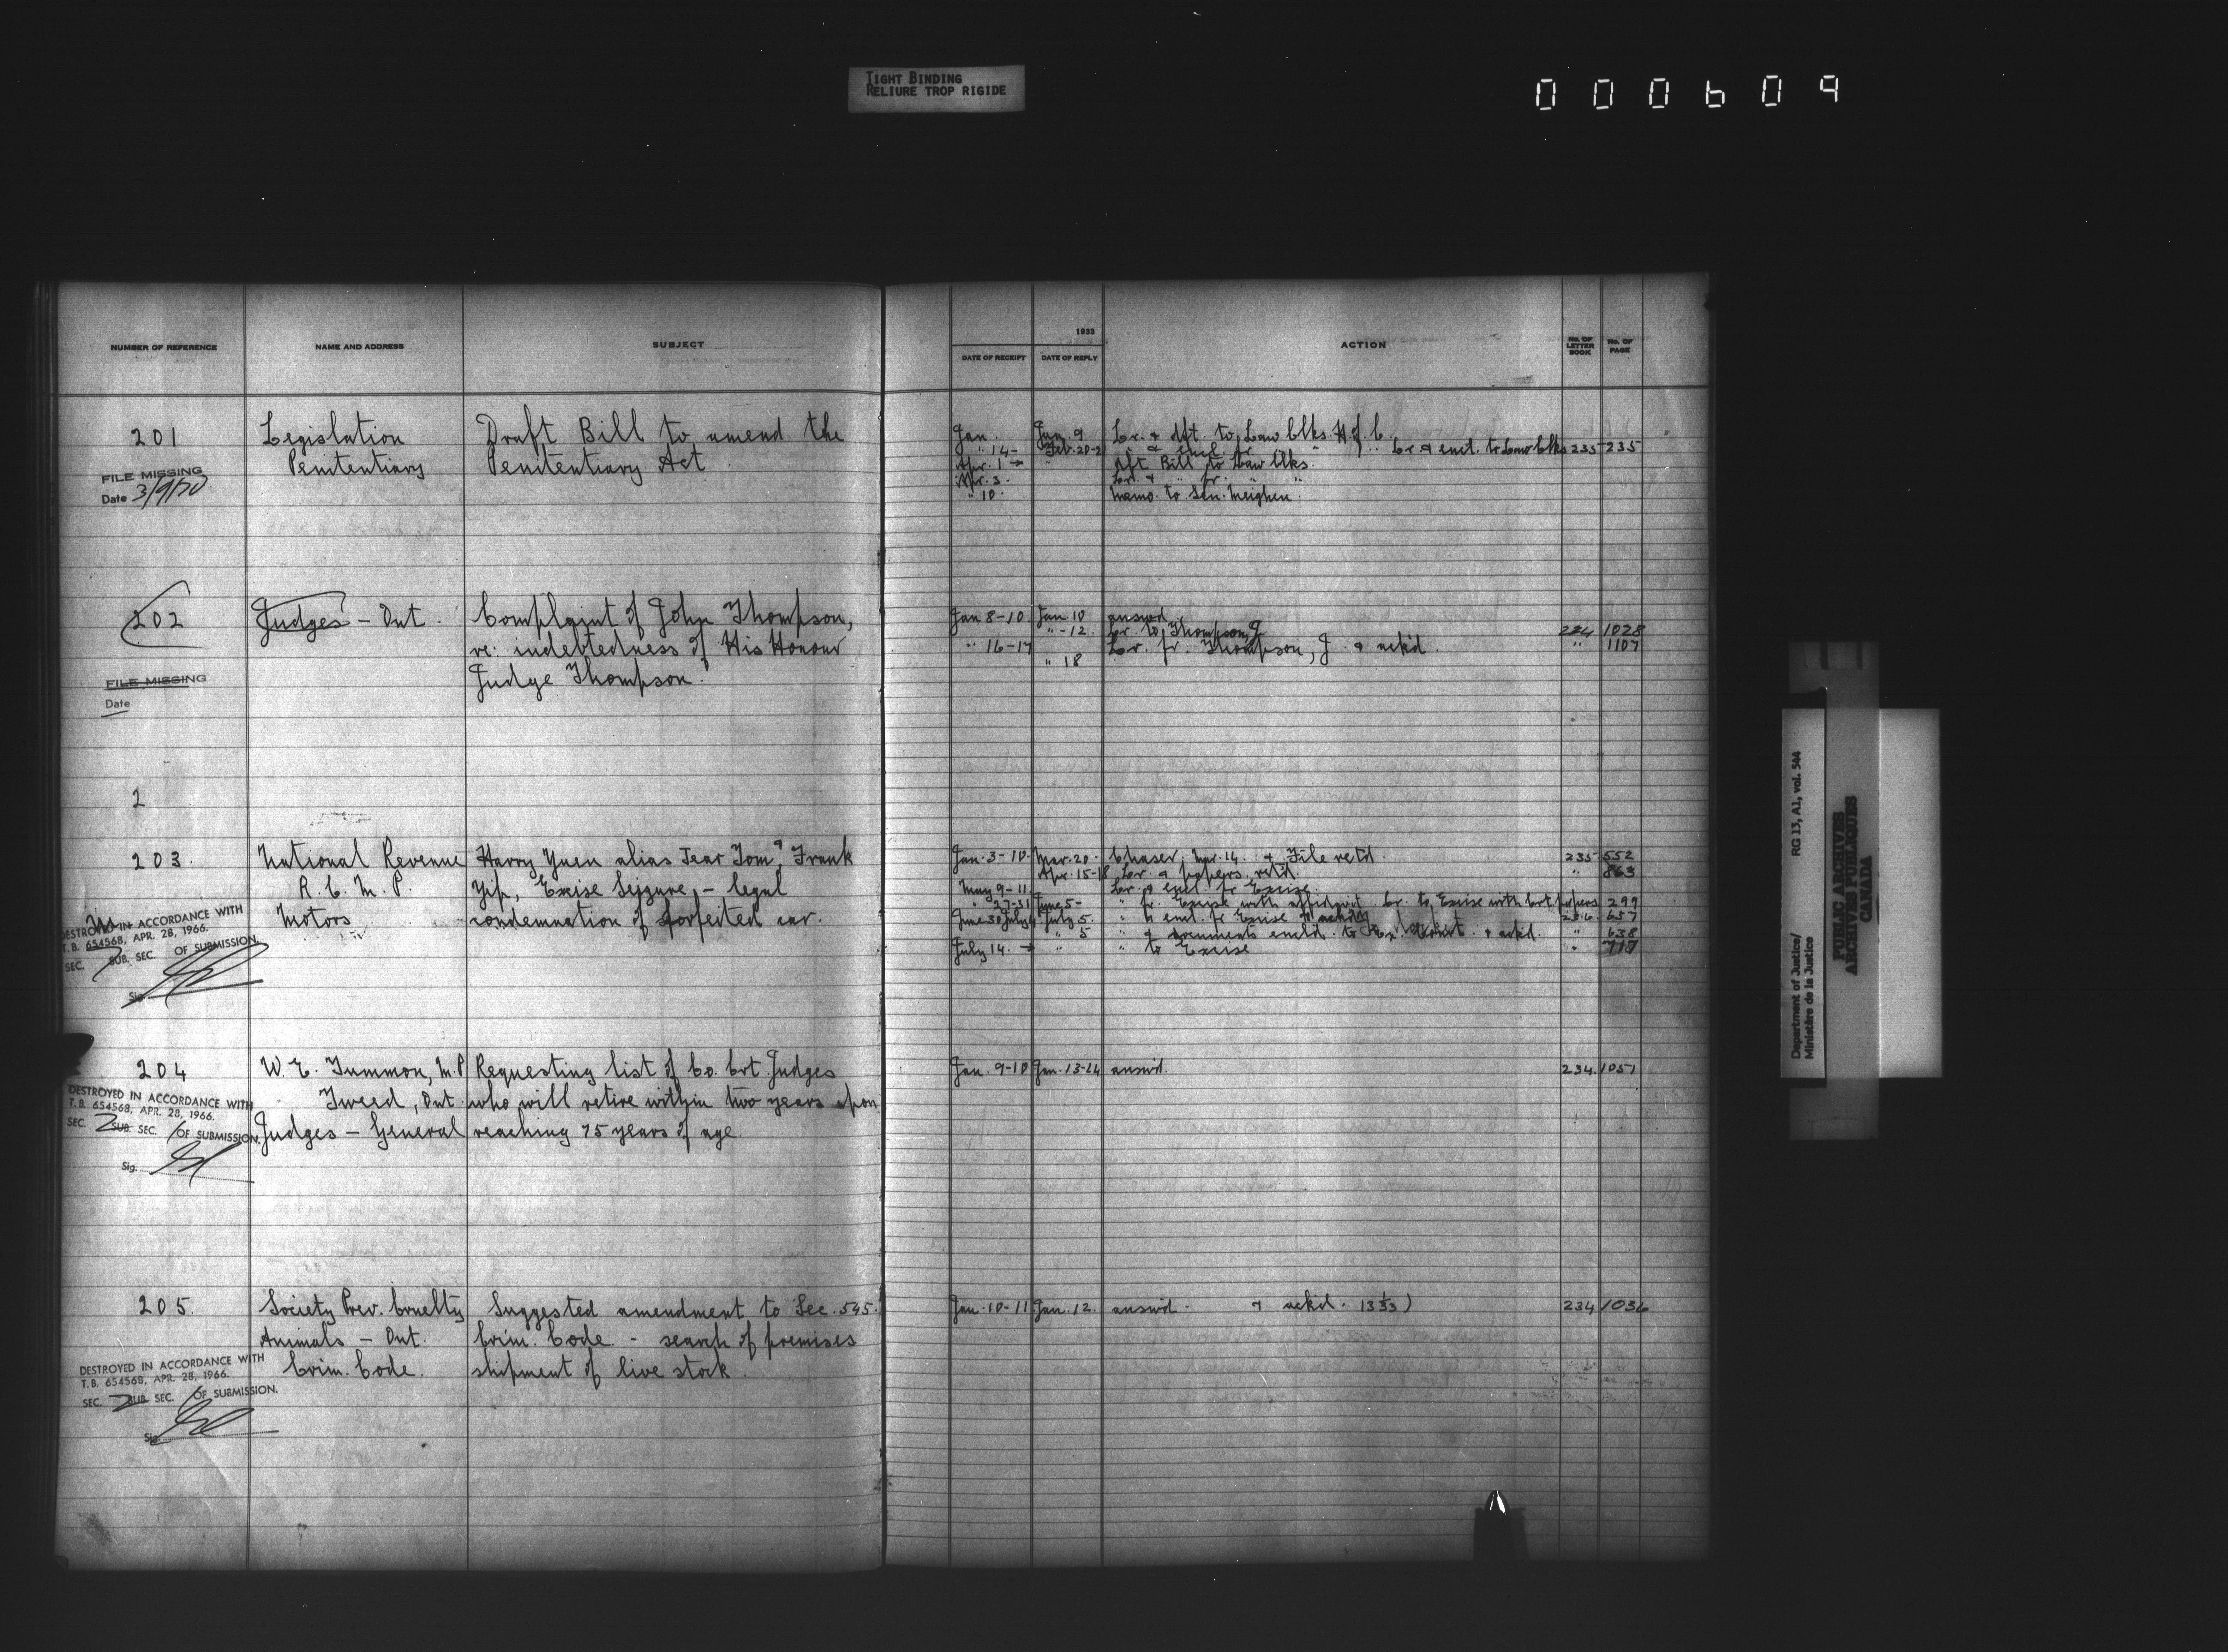 TIGHT BINDING
RELIURE TROP RIGIDE
000609
NUMBER OF REFERENCE
NAME AND ADDRESS
SUBJECT
201
Legislation
Penitentiary
Draft Bill to amend the
Penitentiary Act
FILE MISSING
Date 3/9/70
202
Judges – Ont.
Complaint of John Thompson,
re: indebtedness of His Honour
Judge Thompson.
FILE MISSING
Date
2
203.
National Revenue
R. C. M. P.
Motors
Harry Yuen alias Jear Tom & Frank
Yip, Excise Seizure, – legal
condemnation of forfeited car.
DESTROYED IN ACCORDANCE WITH
T.B. 654568, APR. 28, 1966.
SEC. SUB. SEC. OF SUBMISSION.
Sig.
204
W. E. Tummon, M.P
Tweed, Ont.
Judges – General
Requesting list of Co. Crt. Judges
who will retire within two years upon
reaching 75 years of age
DESTROYED IN ACCORDANCE WITH
T.B. 654568, APR. 28, 1966.
SEC. 2 SUB. SEC. 1 OF SUBMISSION.
Sig.
205.
Society Prev. Cruelty
Animals – Ont.
Crim. Code.
Suggested amendment to Sec. 545.
Crim. Code – search of premises
shipment of live stock.
DESTROYED IN ACCORDANCE WITH
T.B. 654568, APR. 28, 1966.
SEC. 2 SUB. SEC. OF SUBMISSION.
Sig.
1933
DATE OF RECEIPT
DATE OF REPLY
ACTION
No. OF LETTER BOOK
No. OF PAGE
Jan. Jan. 9 Lr. & dft. to Law Clks. H. of C.
" 14 - Feb. 20-2 Lr & encl. to Law Clks 235 235
Apr. 1 → " dft Bill to Law Clks.
Apr. 3. Lr. & " fr. " "
" 10. Memo. to Sen. Meighen.
Jan 8-10 Jan. 10 answd.
" -12. Lr. to Thompson, J. 234 1028
" 16-17 Lr. fr. Thompson, J. & ackd. " 1107
" 18
Jan. 3-10. Mar. 20 - Chaser, Mar. 14. & File retd. 235 552
Apr. 15-18 Lr. & papers retd. " 863
May 9-11 Lr. & encl. fr Excise.
" 27-31 June 5 - " fr. Excise with affidavit. Lr. to Excise with Crt papers 299
June 30 July 4 July 5. " & encl. fr Excise & ackd 236. 637
" 5 " & documents encld. to Ex. Court. & ackd. " 638
July 14. → " " to Excise " 717
Jan. 9-10 Jan. 13-14 answd. 234. 1051
Jan. 10-11 Jan. 12. answd. & ackd. 234 1036
Department of Justice/
Ministère de la Justice
RG 13, A1, vol. 544
PUBLIC ARCHIVES
ARCHIVES PUBLIQUES
CANADA